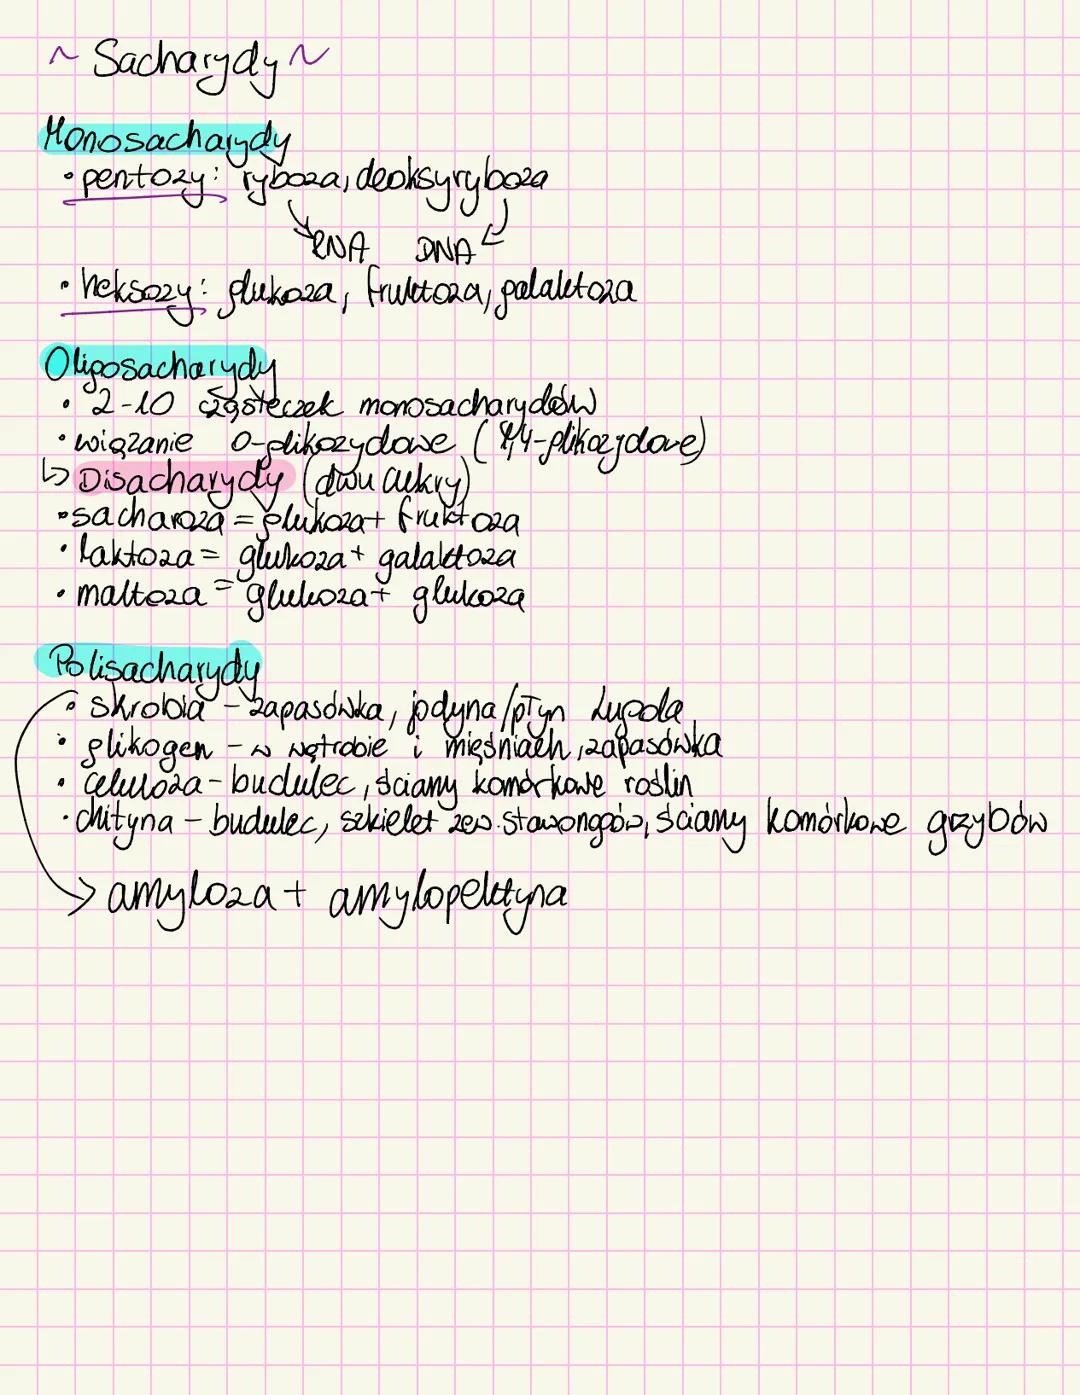 ~ Sacharydy ~
Monosacharydy
• pentozy: ryboza, deoksyryboza
RNA DNA
• heksozy: glukoza, fruktoza, galaktoza
Oligosacharydy
• 2-10 cząsteczek monosacharydów
• wiązanie O-glikozydowe (1,4-glikozydowe)
↳ Disacharydy (dwucukry)
• sacharoza = glukoza + fruktoza
• laktoza = glukoza + galaktoza
• maltoza = glukoza + glukoza
Polisacharydy
• skrobia - zapasówka, jodyna/płyn Lugola
• glikogen - w wątrobie i mięśniach, zapasówka
• celuloza - budulec, ściany komórkowe roślin
• chityna - budulec, szkielet zew. stawonogów, ściany komórkowe grzybów
→ amyloza + amylopektyna